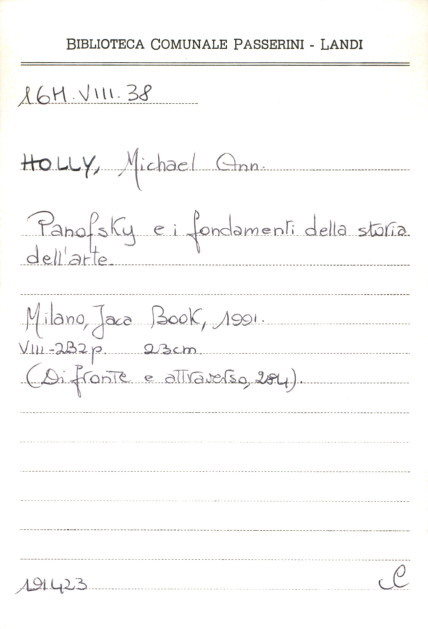 BIBLIOTECA COMUNALE PASSERINI - LANDI
16M.VIII.38
HOLLY, Michael Ann.
Panofsky e i fondamenti della storia
dell'arte.
Milano, Jaca Book, 1991.
VIII-232 p. 23cm.
(Di fronte e attraverso, 284).
191423